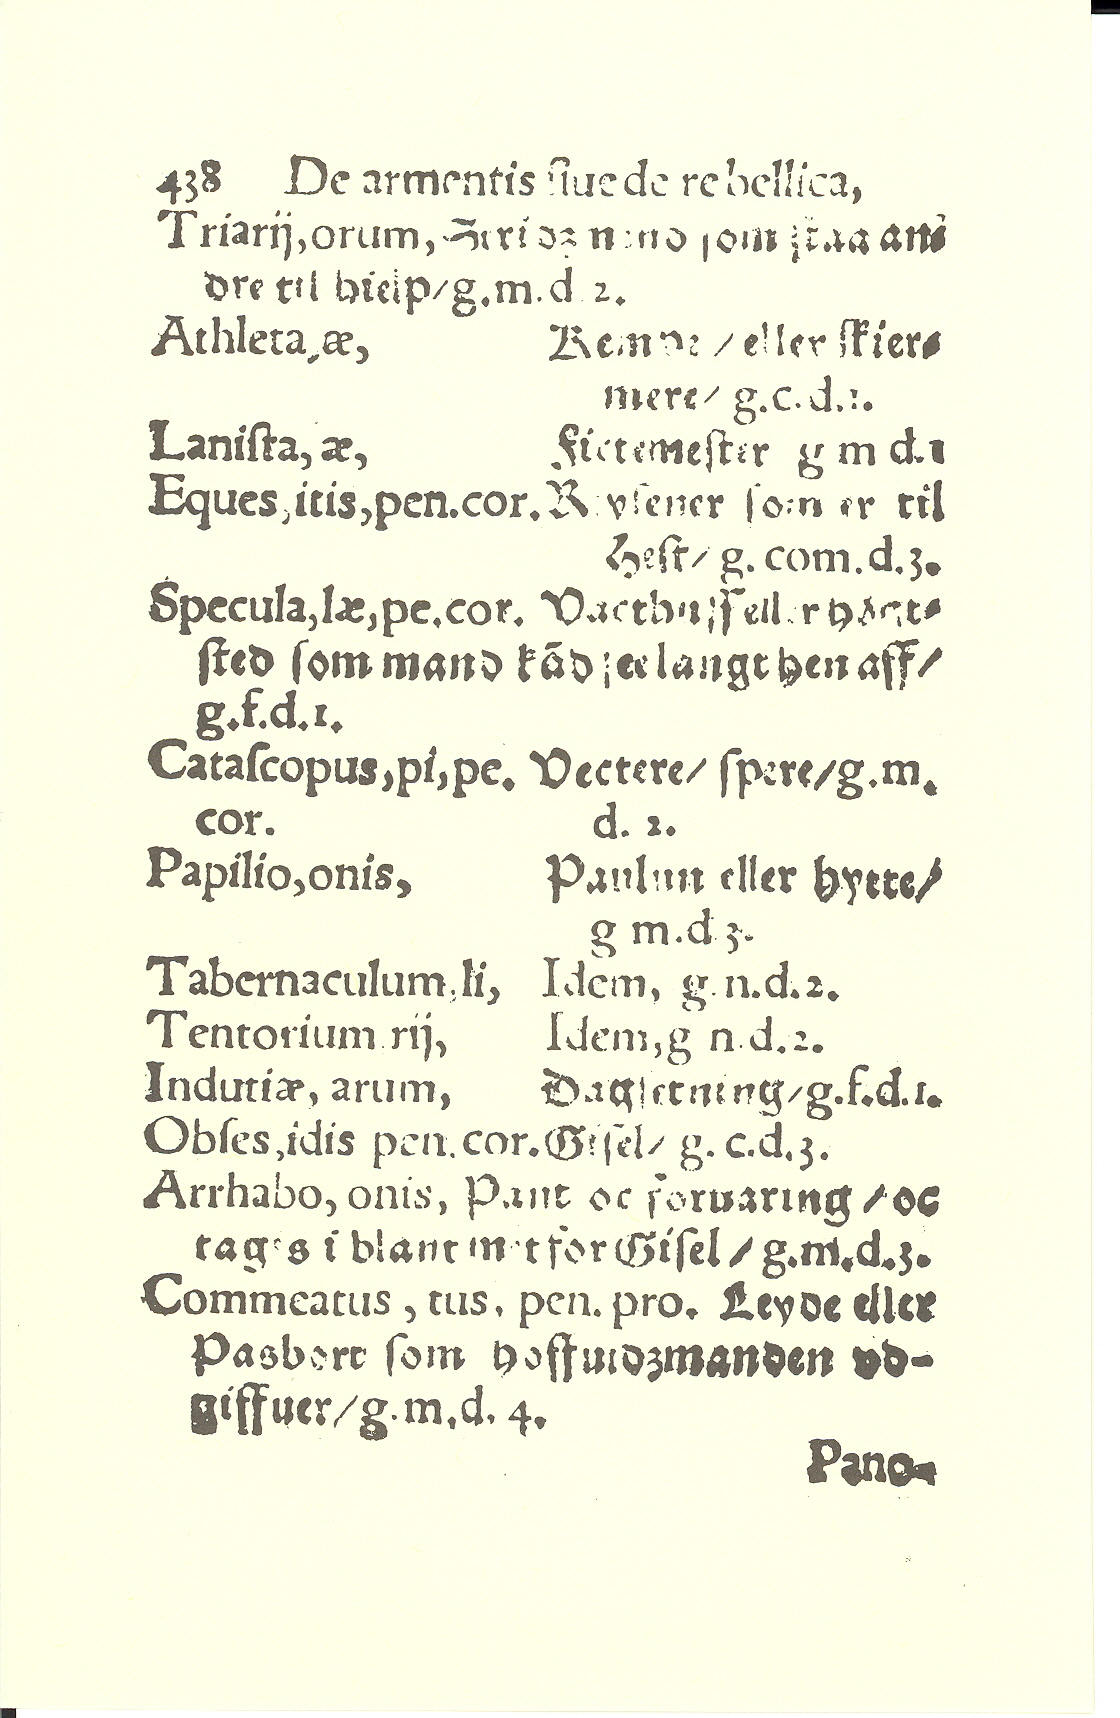 438 De armentis ſiue de re bellica,
Triarij, orum, ſom ſtaa an⸗
dre til hielp/ g.m.d 2.
Athleta, æ, Kempe / eller ſkier⸗
mere/ g.c.d.1.
Laniſta, æ, Fictemeſter g m d.1
Eques, itis, pen.cor. ſom er til
Heſt/ g. com.d.3.
Specula, læ, pe.cor. Vacthuſſ eller
ſted ſom mand kād ſee langt hen aff/
g.f.d.1.
Cataſcopus, pi, pe. Vectere/ ſpere/ g.m.
cor. d. 2.
Papilio, onis, Paulun eller hytte/
g m.d 3.
Tabernaculum, li, Idem, g.n.d.2.
Tentorium rij, Idem, g n.d.2.
Indutiæ, arum, Dagſetning/ g.f.d.1.
Obſes, idis pen.cor. Giſel/ g. c.d.3.
Arrhabo, onis, Pant oc foruaring / oc
tages i blant for Giſel / g.m.d.3.
Commeatus, tus, pen. pro. Leyde eller
Pasbort ſom hoffuidzmanden vd-
giffuer/ g.m.d. 4.
Pano-